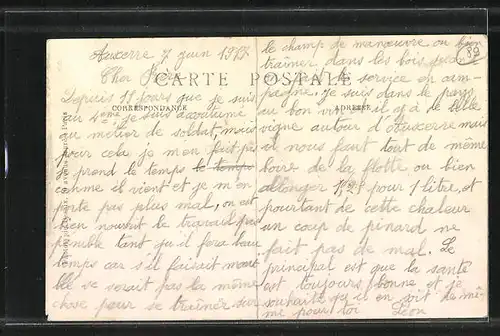 Auxerre 7 juin 1917
Cher Père
CARTE POSTALE
CORRESPONDANCE
ADRESSE
Depuis 15 jours que je suis
au 4ème je suis accoutumé
au métier de soldat, mais
pour cela je m'en fait pas
je prend le temps le temps
comme il vient et je m'en
porte pas plus mal, on est
bien nourrit le travail pas
penible tant qu'il fera beau
temps car s'il faisait mau
ble se serait pas la même
chose pour se traîner sur
le champ de manœuvre ou bien
traîner dans les bois pour
le service en cam-
pagne. je suis dans le pays
au bon vin il y a de belle
vigne autour d'Auxerre mais
il nous faut tout de même
boire de la flotte ou bien
allonger pour 1 litre, et
pourtant de cette chaleur
un coup de pinard ne
fait pas de mal. Le
principal est que la santé
est toujours bonne et je
souhaite qu'il en soit de mê-
me pour toi Léon
82